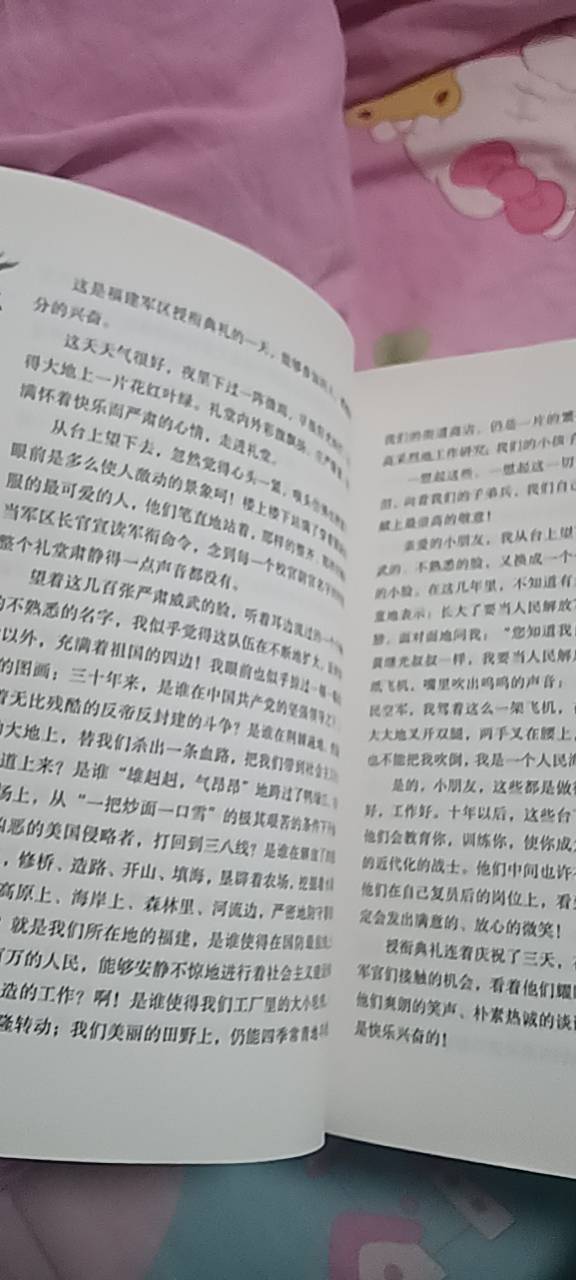 这是福建军区授衔典礼的一天，能够参加的人，
分的兴奋。
这天天气很好，夜里下过一阵微雨，
得大地上一片花红叶绿。礼堂内外彩旗飘扬，庄严
满怀着快乐而严肃的心情，走进礼堂。
从台上望下去，忽然觉得心头一紧，
眼前是多么使人激动的景象呵！楼上楼下站满了穿着
服的最可爱的人，他们笔直地站着，那样的整齐，
当军区长官宣读军衔命令，念到每一个校官尉官名字的
整个礼堂肃静得一点声音都没有。
望着这几百张严肃威武的脸，听着耳边流过的一个
的不熟悉的名字，我似乎觉得这队伍在不断地扩大，
以外，充满着祖国的四边！我眼前也似乎掠过一幅一幅
的图画：三十年来，是谁在中国共产党的坚强领导之下
着无比残酷的反帝反封建的斗争？是谁在荆棘遍地、
大地上，替我们杀出一条血路，把我们带到社会主义
道上来？是谁“雄赳赳，气昂昂”地跨过了鸭绿江，
场上，从“一把炒面一口雪”的极其艰苦的条件下
恶的美国侵略者，打回到三八线？是谁在解放了的
，修桥、造路、开山、填海，垦辟着农场，挖掘着
高原上、海岸上、森林里、河流边，严密地防守着
就是我们所在地的福建，是谁使得在国防最前线
百万的人民，能够安静不惊地进行着社会主义建设
造的工作？啊！是谁使得我们工厂里的大小
隆转动；我们美丽的田野上，仍能四季常青地
我们的街道商店，仍是一片的繁
高采烈地工作研究；我们的小孩子
一想起这些，一想起这一切
泪，向着我们的子弟兵，我们自己
献上最崇高的敬意！
亲爱的小朋友，我从台上望
武的、不熟悉的脸，又换成一个
的小脸。在这几年里，不知道有
意地表示：长大了要当人民解放
膀，面对面地问我：“您知道我
黄继光叔叔一样，我要当人民解
纸飞机，嘴里吹出呜呜的声音：
民空军，我驾着这么一架飞机，
大大地叉开双腿，两手叉在腰上，
也不能把我吹倒，我是一个人民海
是的，小朋友，这些都是做得
好，工作好。十年以后，这些台下
他们会教育你，训练你，使你成为
的近代化的战士。他们中间也许
他们在自己复员后的岗位上，看
定会发出满意的、放心的微笑！
授衔典礼连着庆祝了三天，
军官们接触的机会，看着他们耀眼
他们爽朗的笑声、朴素热诚的谈
是快乐兴奋的！